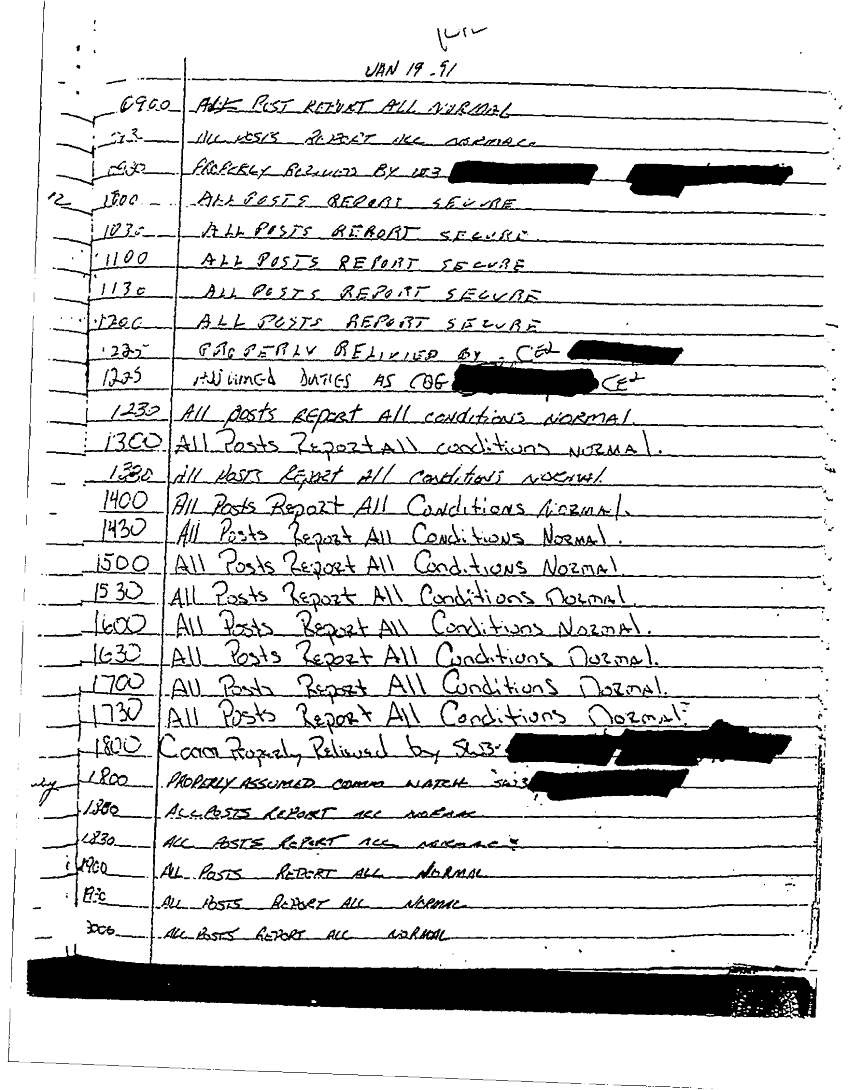 JAN 19 .91
0900 ALL POST REPORT ALL NORMAL
ALL POSTS REPORT ALL NORMAL
0930 PROPERLY RELIEVED BY
12 1000 ALL POSTS REPORT SECURE
1030 ALL POSTS REPORT SECURE
1100 ALL POSTS REPORT SECURE
1130 ALL POSTS REPORT SECURE
1200 ALL POSTS REPORT SECURE
1225 PROPERLY RELIVIED BY CE2
1225 DUTIES AS COG CE2
1230 All posts REPORT All conditions NORMAL.
1300 All Posts Report All conditions NORMAL.
1330 All Posts Report All Conditions NORMAL
1400 All Posts Report All Conditions Normal.
1430 All Posts Report All Conditions Normal.
1500 All Posts Report All Conditions Normal
1530 All Posts Report All Conditions Normal
1600 All Posts Report All Conditions Normal.
1630 All Posts Report All Conditions Normal.
1700 All Posts Report All Conditions Normal.
1730 All Posts Report All Conditions Normal.
1800 Comm Properly Relieved by SW3-
1800 PROPERLY ASSUMED COMM WATCH SW3
1800 ALL POSTS REPORT ALL NORMAL
1830 ALL POSTS REPORT ALL NORMAL
1900 ALL POSTS REPORT ALL NORMAL
1930 ALL POSTS REPORT ALL NORMAL
ALL POSTS REPORT ALL NORMAL